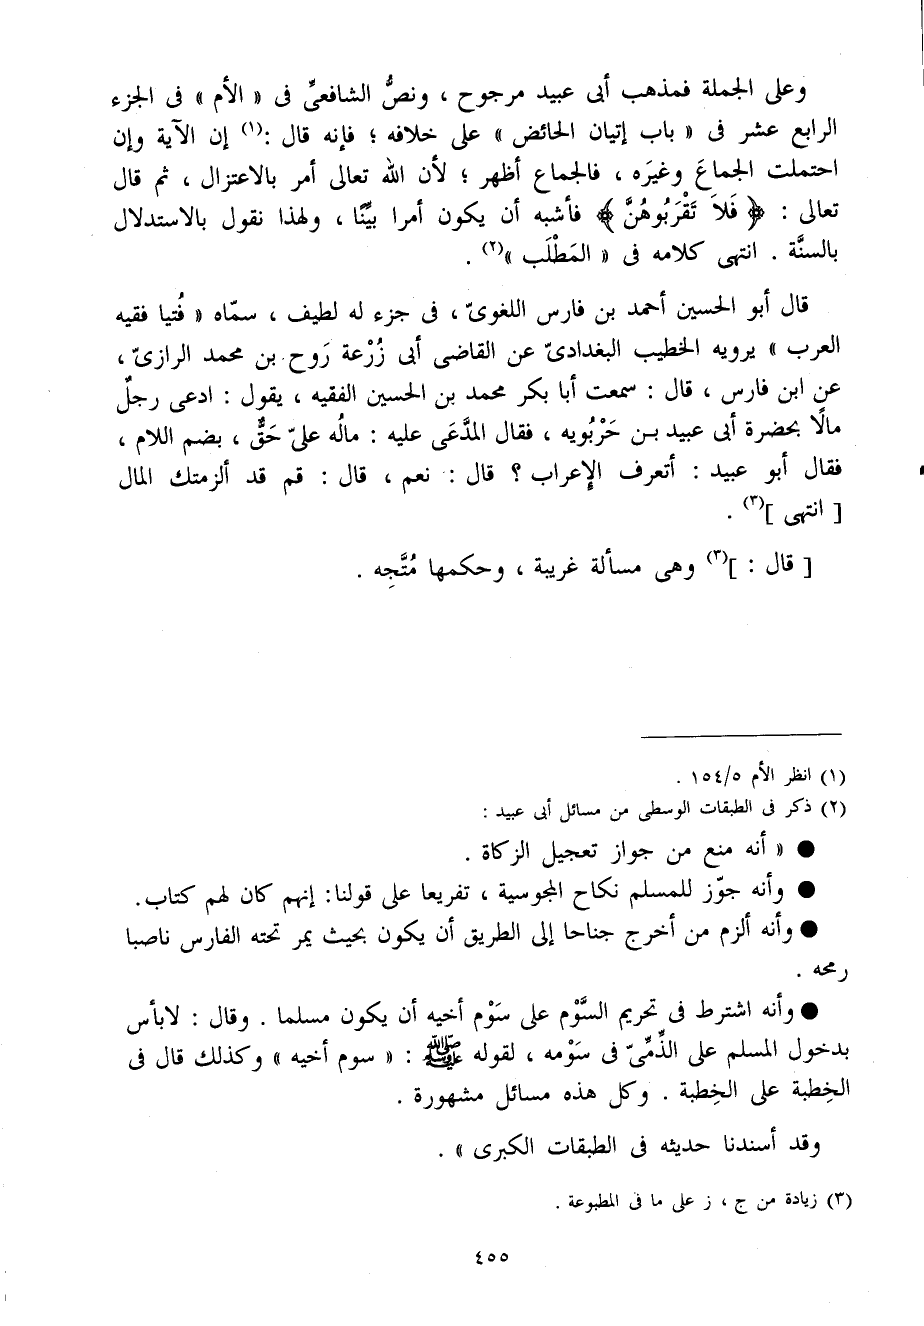 وعلى الجملة فمذهب أبى عبيد مرجوح ، ونصُّ الشافعىِّ فى « الأم » فى الجزء
الرابع عشر فى « باب إتيان الحائض » على خلافه ؛ فإنه قال :(١) إن الآية وإن
احتملت الجماعَ وغيرَه ، فالجماع أظهر ؛ لأن الله تعالى أمر بالاعتزال ، ثم قال
تعالى : ﴿ فَلاَ تَقْرَبُوهُنَّ ﴾ فأشبه أن يكون أمرا بيِّنًا ، ولهذا نقول بالاستدلال
بالسنَّة . انتهى كلامه فى « المَطْلَب »(٢) .
قال أبو الحسين أحمد بن فارس اللغوىّ ، فى جزء له لطيف ، سمّاه « فُتيا فقيه
العرب » يرويه الخطيب البغدادىّ عن القاضى أبى زُرْعة رَوح بن محمد الرازىّ ،
عن ابن فارس ، قال : سمعت أبا بكر محمد بن الحسين الفقيه ، يقول : ادعى رجلٌ
مالًا بحضرة أبى عبيد بن حَرْبُويه ، فقال المدَّعَى عليه : مالُه علىّ حَقٌّ ، بضم اللام ،
فقال أبو عبيد : أتعرف الإعراب ؟ قال : نعم ، قال : قم قد ألزمتك المال
[ انتهى ](٣) .
[ قال : ](٣) وهى مسألة غريبة ، وحكمها مُتَّجِه .
(١) انظر الأم ١٥٤/٥ .
(٢) ذكر فى الطبقات الوسطى من مسائل أبى عبيد :
● « أنه منع من جواز تعجيل الزكاة .
● وأنه جوّز للمسلم نكاح المجوسية ، تفريعا على قولنا: إنهم كان لهم كتاب.
● وأنه ألزم من أخرج جناحا إلى الطريق أن يكون بحيث يمر تحته الفارس ناصبا
رمحه .
● وأنه اشترط فى تحريم السَّوْم على سَوْم أخيه أن يكون مسلما . وقال : لابأس
بدخول المسلم على الذِّمِّىّ فى سَوْمه ، لقوله ﷺ : « سوم أخيه » وكذلك قال فى
الخِطبة على الخِطبة . وكل هذه مسائل مشهورة .
وقد أسندنا حديثه فى الطبقات الكبرى » .
(٣) زيادة من ج ، ز على ما فى المطبوعة .
٤٥٥